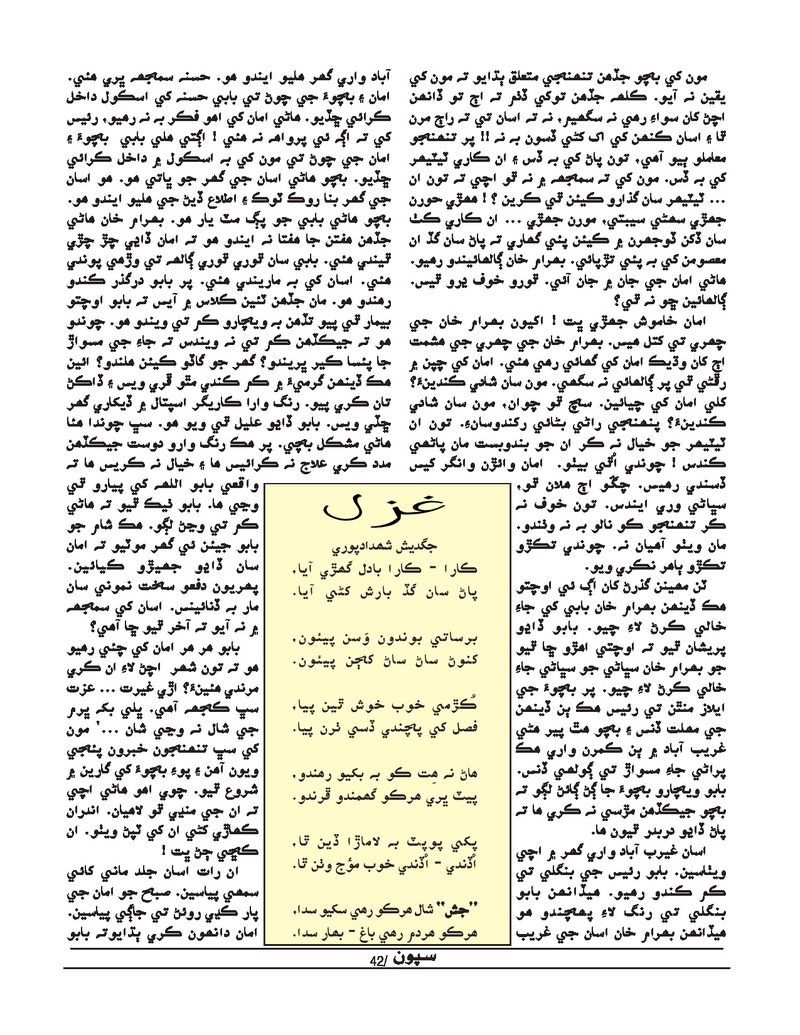 مون کي بچو جڏهن تنهنجي متعلق ٻڌايو ته مون کي
يقين نه آيو. ڪلهه جڏهن توکي ڏٺم ته اڄ تو ڏانهن
اچڻ کان سواءِ رهي نه سگهيم، نه ته اسان تي ته راڄ مرن
ٿا ۽ اسان ڪنهن کي اک کڻي ڏسون به نه !! پر تنهنجو
معاملو ٻيو آهي، تون پاڻ کي به ڏس ۽ ان ڪاري ٽيٽيهر
کي به ڏس. مون کي ته سمجهه ۾ نه ٿو اچي ته تون ان
... ٽيٽيهر سان گذارو ڪيئن ٿي ڪرين ؟ ! هھڙي حورن
جهڙي سهڻي سيبتي، مورن جهڙي ... ان ڪاري ڪٺ
سان ڏکن ڏوجهرن ۾ ڪيئن پئي گهاري ته پاڻ سان گڏ ان
معصومن کي به پئي تڙپائي. بهرام خان ڳالهائيندو رهيو.
هاڻي امان جي جان ۾ جان آئي. ٿورو خوف ڍرو ٿيس.
ڳالهائين ڇو نه ٿي؟
امان خاموش جهڙي ڀت ! اکيون بهرام خان جي
چهري تي کتل هيس. بهرام خان جي چهري جي هشمت
اڄ کان وڌيڪ امان کي گهائي رهي هئي. امان کي چپن ۾
رڦڻي ٿي پر ڳالهائي نه سگهي. مون سان شادي ڪندينءَ؟
کلي امان کي چيائين. سچ ٿو چوان، مون سان شادي
ڪندينءَ؟ پنهنجي راڻي بڻائي رکندوسان﻿ءِ. تون ان
ٽيٽيهر جو خيال نه ڪر ان جو بندوبست مان پاڻهي
ڪندس ! چوندي اُٿي بيٺو. امان وائڙن وانگر کيس
ڏسندي رهيس. چڱو اڄ هلان ٿو،
سڀاڻي وري ايندس. تون خوف نه
ڪر تنهنجو ڪو نالو به نه وٺندو.
مان ويٺو آهيان نه. چوندي تڪڙو
تڪڙو ٻاهر نڪري ويو.
ٽن مهينن گذرڻ کان اڳ ئي اوچتو
هڪ ڏينهن بهرام خان بابي کي جاءِ
خالي ڪرڻ لاءِ چيو. بابو ڏاڍو
پريشان ٿيو ته اوچتي اهڙو ڇا ٿيو
جو بهرام خان سڀاڻي جو سڀاڻي جاءِ
خالي ڪرڻ لاءِ چيو. پر بچوءَ جي
ايلاز منٿن تي رئيس هڪ ٻن ڏينهن
جي مهلت ڏنس ۽ بچو هٿ پير هڻي
غريب آباد ۾ ٻن ڪمرن واري هڪ
پراڻي جاءِ مسواڙ تي ڳولهي ڏنس.
بابو ويچارو بچوءَ جا ڳڻ ڳائڻ لڳو ته
بچو جيڪڏهن مڙسي نه ڪري ها ته
پاڻ ڏاڍو دربدر ٿيون ها.
اسان غيرب آباد واري گهر ۾ اچي
ويٺاسين. بابو رئيس جي بنگلي تي
ڪم ڪندو رهيو. هيڏانهن بابو
بنگلي تي رنگ لاءِ پهچندو هو
هيڏانهن بهرام خان اسان جي غريب
آباد واري گهر هليو ايندو هو. حسنه سمجهه ڀري هئي.
امان ۽ بچوءَ جي چوڻ تي بابي حسنه کي اسڪول داخل
ڪرائي ڇڏيو. هاڻي امان کي اهو فڪر به نه رهيو، رئيس
کي ته اڳ ئي پرواهه نه هئي ! اڳتي هلي بابي بچوءَ ۽
امان جي چوڻ تي مون کي به اسڪول ۾ داخل ڪرائي
ڇڏيو. بچو هاڻي اسان جي گهر جو ڀاتي هو. هو اسان
جي گهر بنا روڪ ٽوڪ ۽ اطلاع ڏيڻ جي هليو ايندو هو.
بچو هاڻي بابي جو پڳ مٽ يار هو. بهرام خان هاڻي
جڏهن هفتن جا هفتا نه ايندو هو ته امان ڏاڍي چڙ چڙي
ٿيندي هئي. بابي سان ٿوري ٿوري ڳالهه تي وڙهي پوندي
هئي. اسان کي به ماريندي هئي. پر بابو درگذر ڪندو
رهندو هو. مان جڏهن ٽئين ڪلاس ۾ آيس ته بابو اوچتو
بيمار ٿي پيو تڏهن به ويچارو ڪم تي ويندو هو. چوندو
هو ته جيڪڏهن ڪم تي نه ويندس ته جاءِ جي مسواڙ
جا پئسا ڪير ڀريندو؟ گهر جو گاڏو ڪيئن هلندو؟ ائين
هڪ ڏينهن گرميءَ ۾ ڪم ڪندي مٿو ڦري ويس ۽ ڏاڪڻ
تان ڪري پيو. رنگ وارا ڪاريگر اسپتال ۾ ڏيکاري گهر
ڇڏي ويس. بابو ڏاڍو عليل ٿي ويو هو. سڀ چوندا هئا
هاڻي مشڪل بچي. پر هڪ رنگ وارو دوست جيڪڏهن
مدد ڪري علاج نه ڪرائيس ها ۽ خيال نه ڪريس ها ته
واقعي بابو الله کي پيارو ٿي
وڃي ها. بابو ٺيڪ ٿيو ته هاڻي
ڪم تي وڃڻ لڳو. هڪ شام جو
بابو جيئن ئي گهر موٽيو ته امان
سان ڏاڍو جهيڙو ڪيائين.
پهريون دفعو سخت نموني سان
مار به ڏنائينس. اسان کي سمجهه
۾ نه آيو ته آخر ٿيو ڇا آهي؟
بابو هر هر امان کي چئي رهيو
هو ته تون شهر اچڻ لاءِ ان ڪري
مرندي هئينءَ؟ اڙي غيرت ... عزت
سڀ ڪجهه آهي. ڀلي بکه ڀرم
جي شال نه وڃي شان ...' مون
کي سڀ تنهنجون خبرون پئجي
ويون آهن ۽ پوءِ بچوءَ کي گارين ۾
شروع ٿيو. چوي اهو هاڻي اچي
ته ان جي منڍي ٿو لاهيان. اندران
ڪهاڙي کڻي ان کي ٽپڻ ويٺو. ان
ڪڇي ڄڻ ڀت !
ان رات اسان جلد ماني کائي
سمهي پياسين. صبح جو امان جي
پار ڪڍي روئڻ تي جاڳي پياسين.
امان دانهون ڪري ٻڌايوته بابو
غزل
جگديش شهدادپوري
ڪارا - ڪارا بادل گهڙي آيا،
پاڻ سان گڏ بارش کڻي آيا.
برساتي بوندون وَسن پيئون،
کنوڻ ساڻ ساڻ کڄن پيئون.
ڪُڙمي خوب خوش ٿين پيا،
فصل کي پچندي ڏسي ٺرن پيا.
هاڻ نه هِت ڪو به بکيو رهندو،
پيٽ ڀري هرڪو گهمندو ڦرندو.
پکي پوپٽ به لامارا ڏين ٿا،
اُڏندي - اُڏندي خوب مؤج وٺن ٿا.
"جش" شال هرڪو رهي سکيو سدا،
هرڪو هردم رهي باغ - بهار سدا.
سپون /42